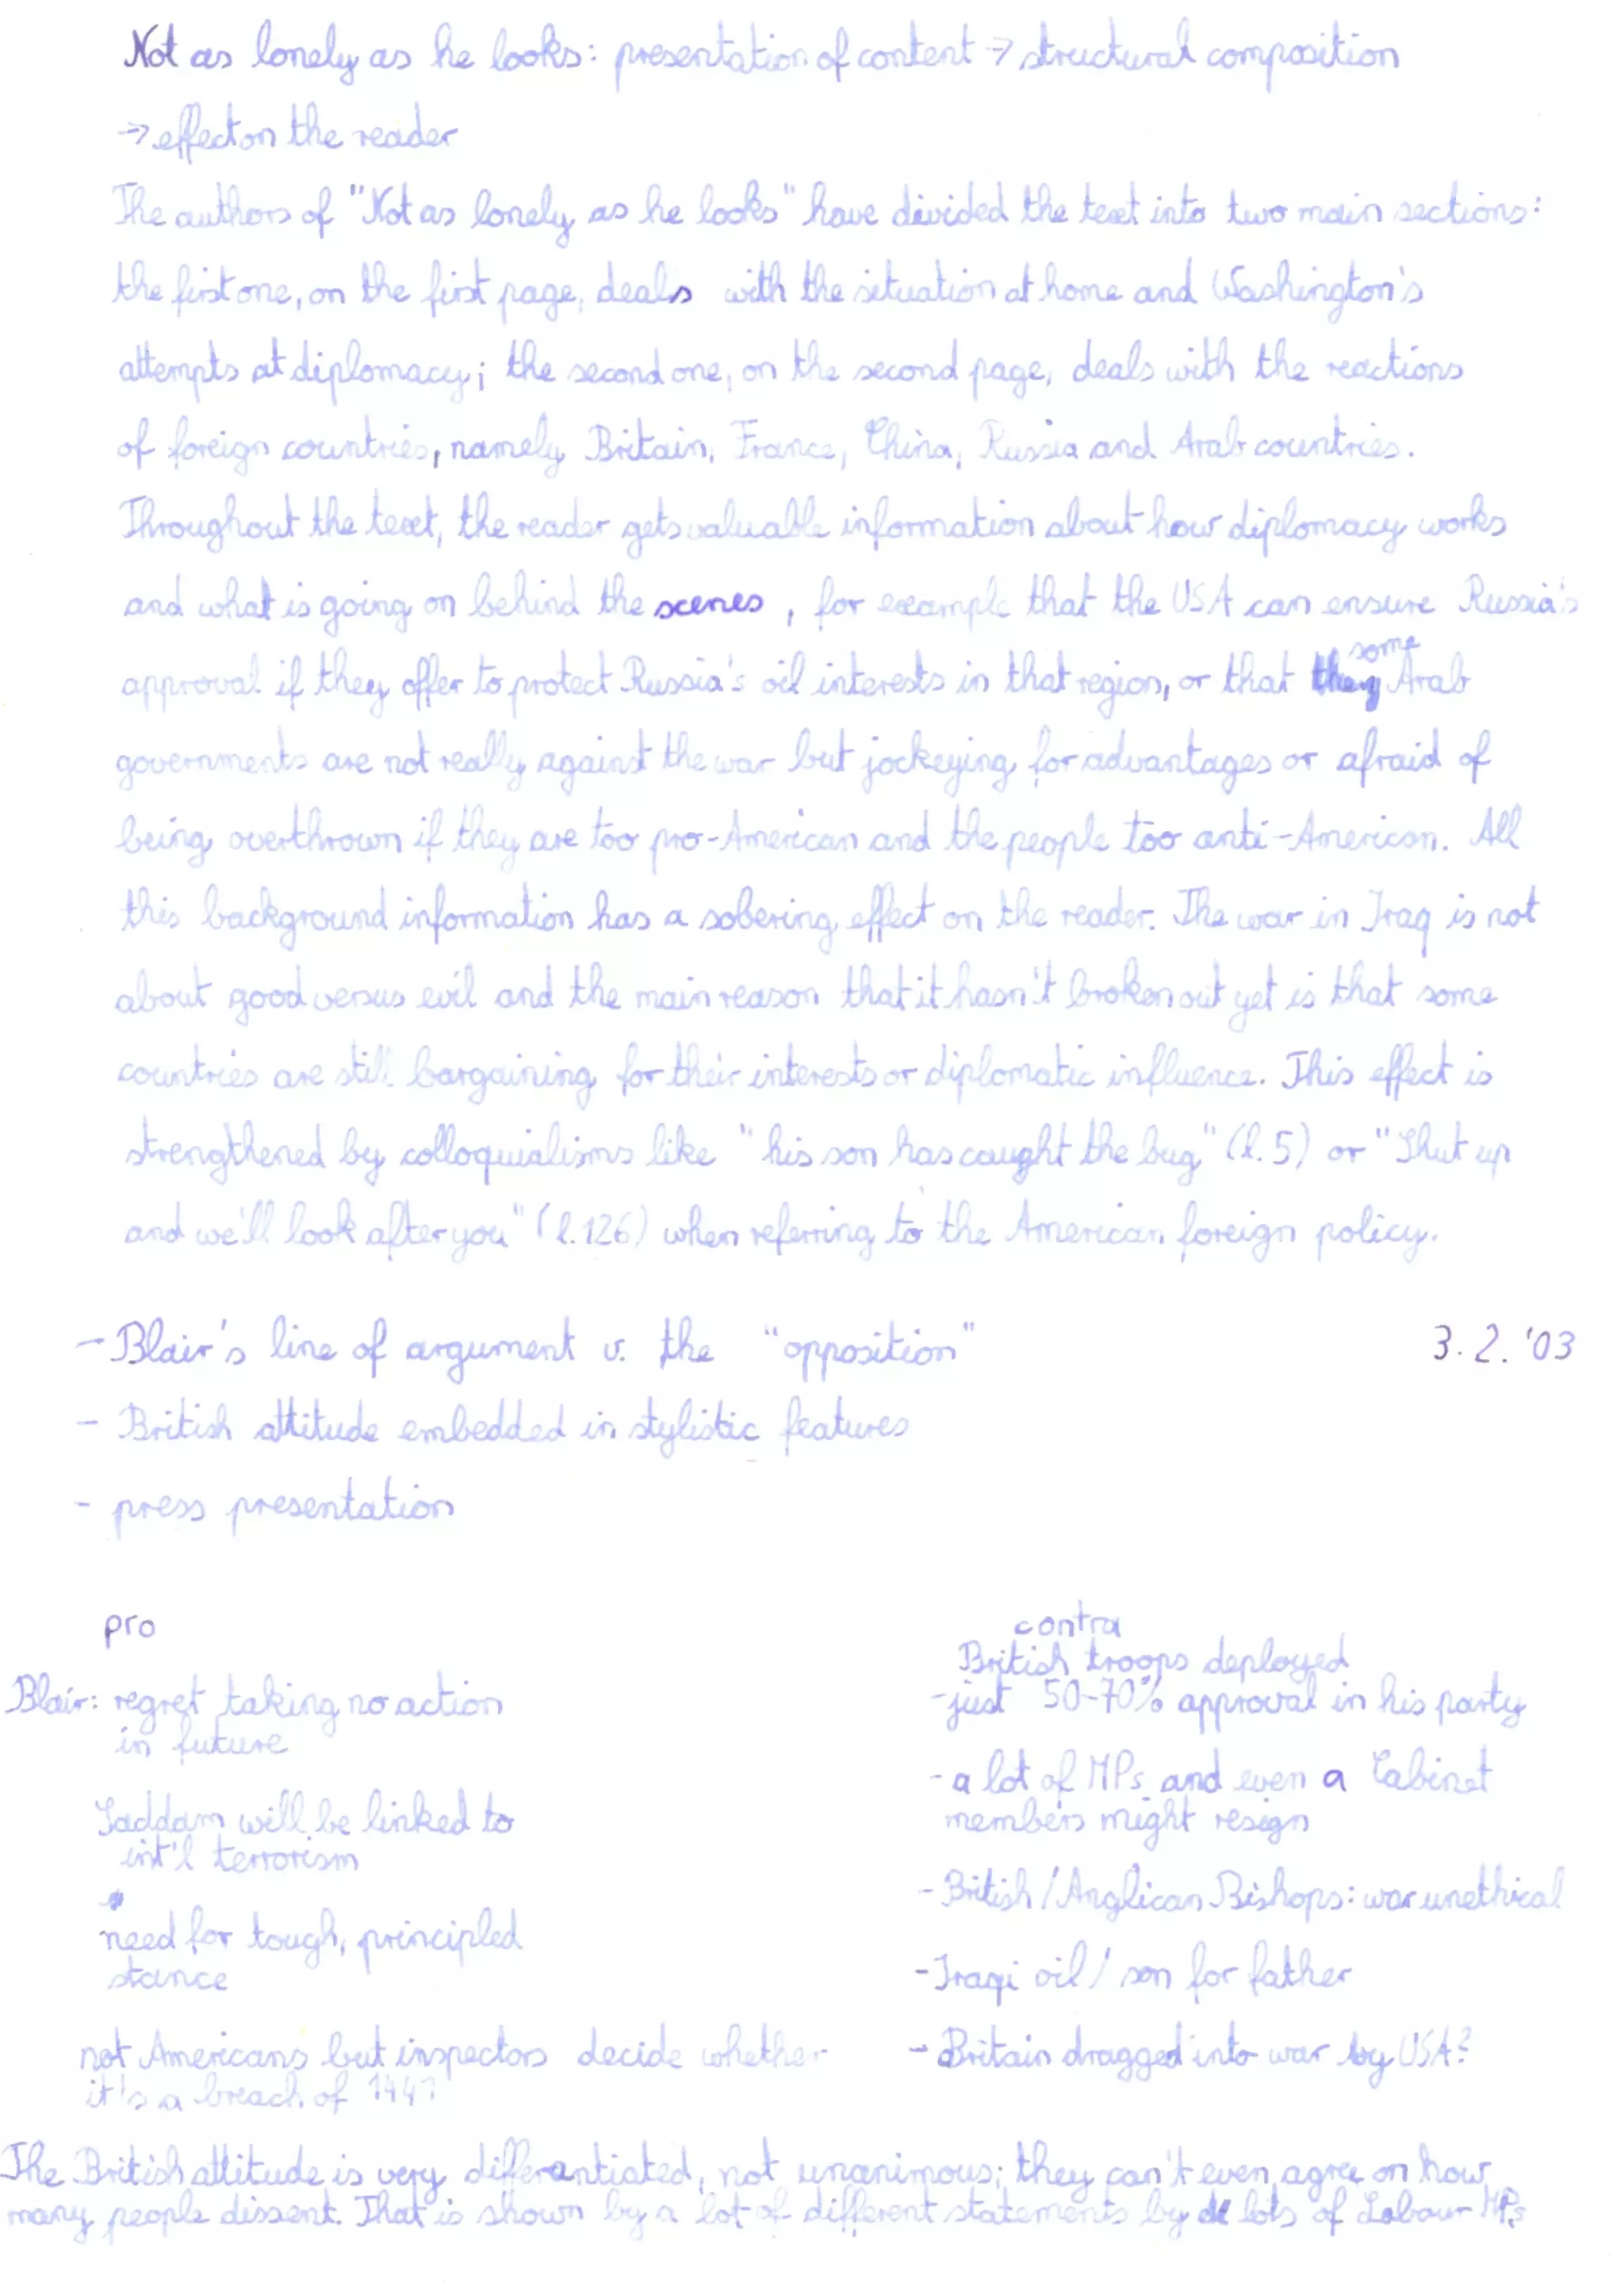 Not as lonely as he looks: presentation of content → structural composition
→ effect on the reader
The authors of "Not as lonely as he looks" have divided the text into two main sections:
the first one, on the first page, deals with the situation at home and Washington's
attempts at diplomacy; the second one, on the second page, deals with the reactions
of foreign countries, namely Britain, France, China, Russia and Arab countries.
Throughout the text, the reader gets valuable information about how diplomacy works
and what is going on behind the scenes, for example that the USA can ensure Russia's
approval if they offer to protect Russia's oil interests in that region, or that some Arab
governments are not really against the war but jockeying for advantages or afraid of
being overthrown if they are too pro-American and the people too anti-American. All
this background information has a sobering effect on the reader. The war in Iraq is not
about good versus evil and the main reason that it hasn't broken out yet is that some
countries are still bargaining for their interests or diplomatic influence. This effect is
strengthened by colloquialisms like "his son has caught the bug" (l. 5) or "Shut up
and we'll look after you" (l. 126) when referring to the American foreign policy.
- Blair's line of argument v. the "opposition" 3.2.'03
- British attitude embedded in stylistic features
- press presentation
pro
Blair: regret taking no action
in future
Saddam will be linked to
int'l terrorism
need for tough, principled
stance
not Americans but inspectors decide whether
it's a breach of 1441
contra
British troops deployed
- just 50-70% approval in his party
- a lot of MPs and even a Cabinet
members might resign
- British / Anglican Bishops: war unethical
- Iraqi oil / son for father
- Britain dragged into war by USA?
The British attitude is very differentiated, not unanimous; they can't even agree on how
many people dissent. That is shown by a lot of different statements by lots of Labour MPs